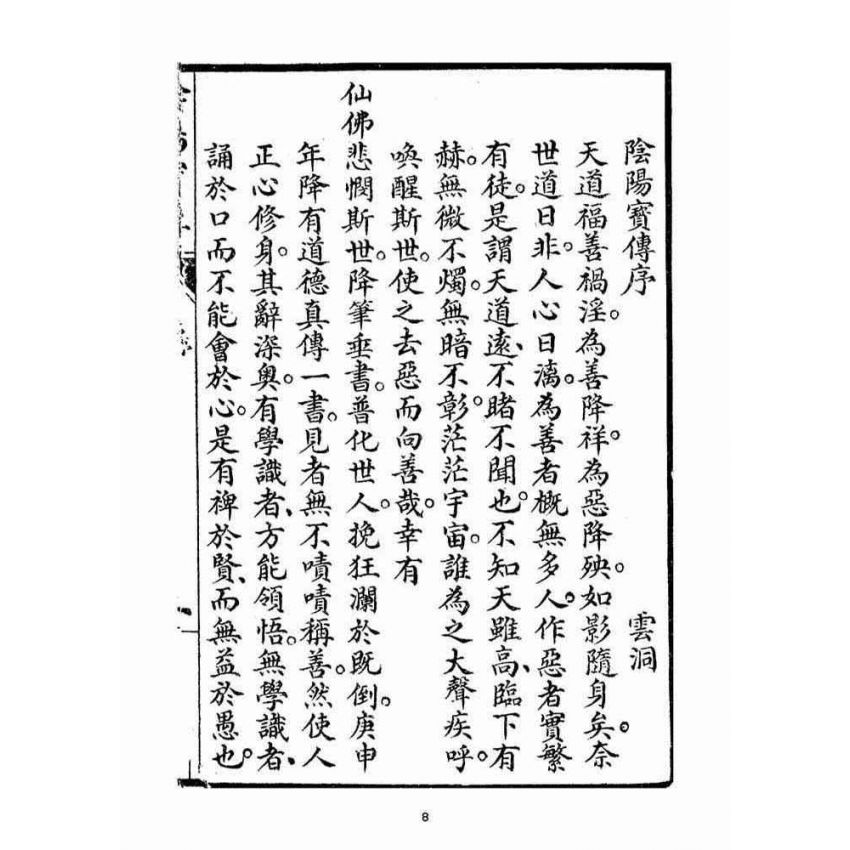 陰陽寶傳序 雲洞
天道福善禍淫。為善降祥。為惡降殃。如影隨身矣。奈
世道日非。人心日漓。為善者概無多人。作惡者實繁
有徒。是謂天道遠、不睹不聞也。不知天雖高、臨下有
赫。無微不燭。無暗不彰。茫茫宇宙。誰為之大聲疾呼。
喚醒斯世。使之去惡而向善哉。幸有
仙佛悲憫斯世。降筆垂書。普化世人。挽狂瀾於既倒。庚申
年降有道德真傳一書。見者無不嘖嘖稱善。然使人
正心修身。其辭深奧。有學識者、方能領悟。無學識者、
誦於口而不能會於心。是有裨於賢、而無益於愚也。
8